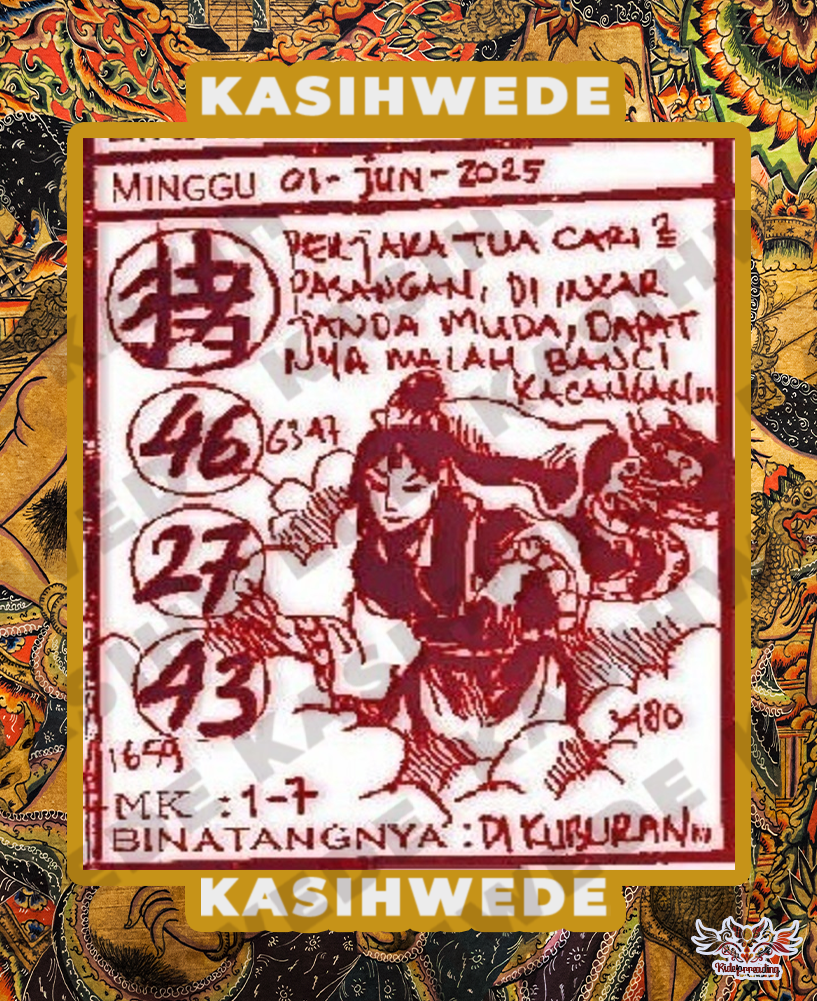 KASIHWEDE
MINGGU 01-JUN-2025
PERJAKA TUA CARI 2
PASANGAN, DI INCAR
JANDA MUDA, DAPAT
NYA MALAH BANCI
KACANGAN
猪
46 6347
27
43
1659
MK : 1-7
BINATANGNYA : DI KUBURAN
KASIHWEDE